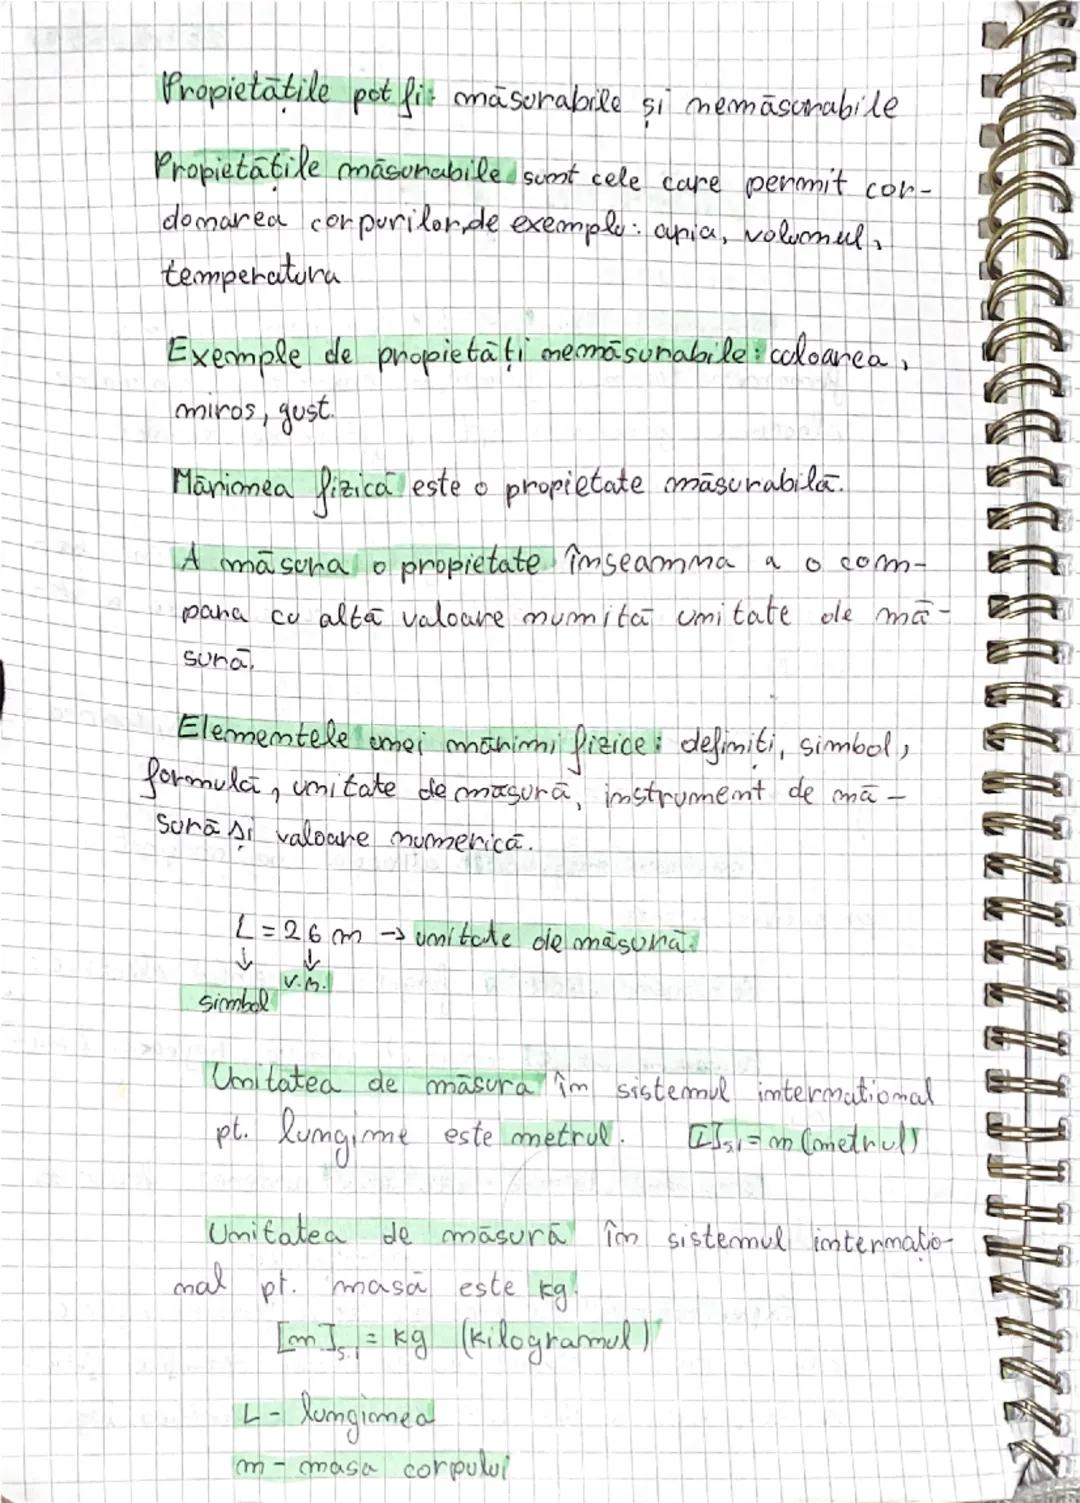 Propietățile pot fi: măsurabile și nemăsurabile
Propietățile măsurabile sunt cele care permit cor-
donarea corpurilor, de exemplu: aria, volumul,
temperatura
Exemple de propietăți nemăsurabile: culoarea,
miros, gust.
Mărimea fizică este o propietate măsurabilă.
A măsura o propietate înseamna a o com-
para cu altă valoare numită unitate de mă-
sură.
Elementele unei mărimi fizice: definiți, simbol,
formulă, unitate de măsură, instrument de mă-
sură și valoare numerică.
L = 26 m → unitate de măsură.
↓ ↓
v.n.
simbol
Unitatea de măsura în sistemul international
pt. lungime este metrul. [L]S.I = m (metrul)
Unitatea de măsură în sistemul internațio-
nal pt. masă este kg.
[m]S.I = kg (kilogramul)
L - lungimea
m - masa corpului